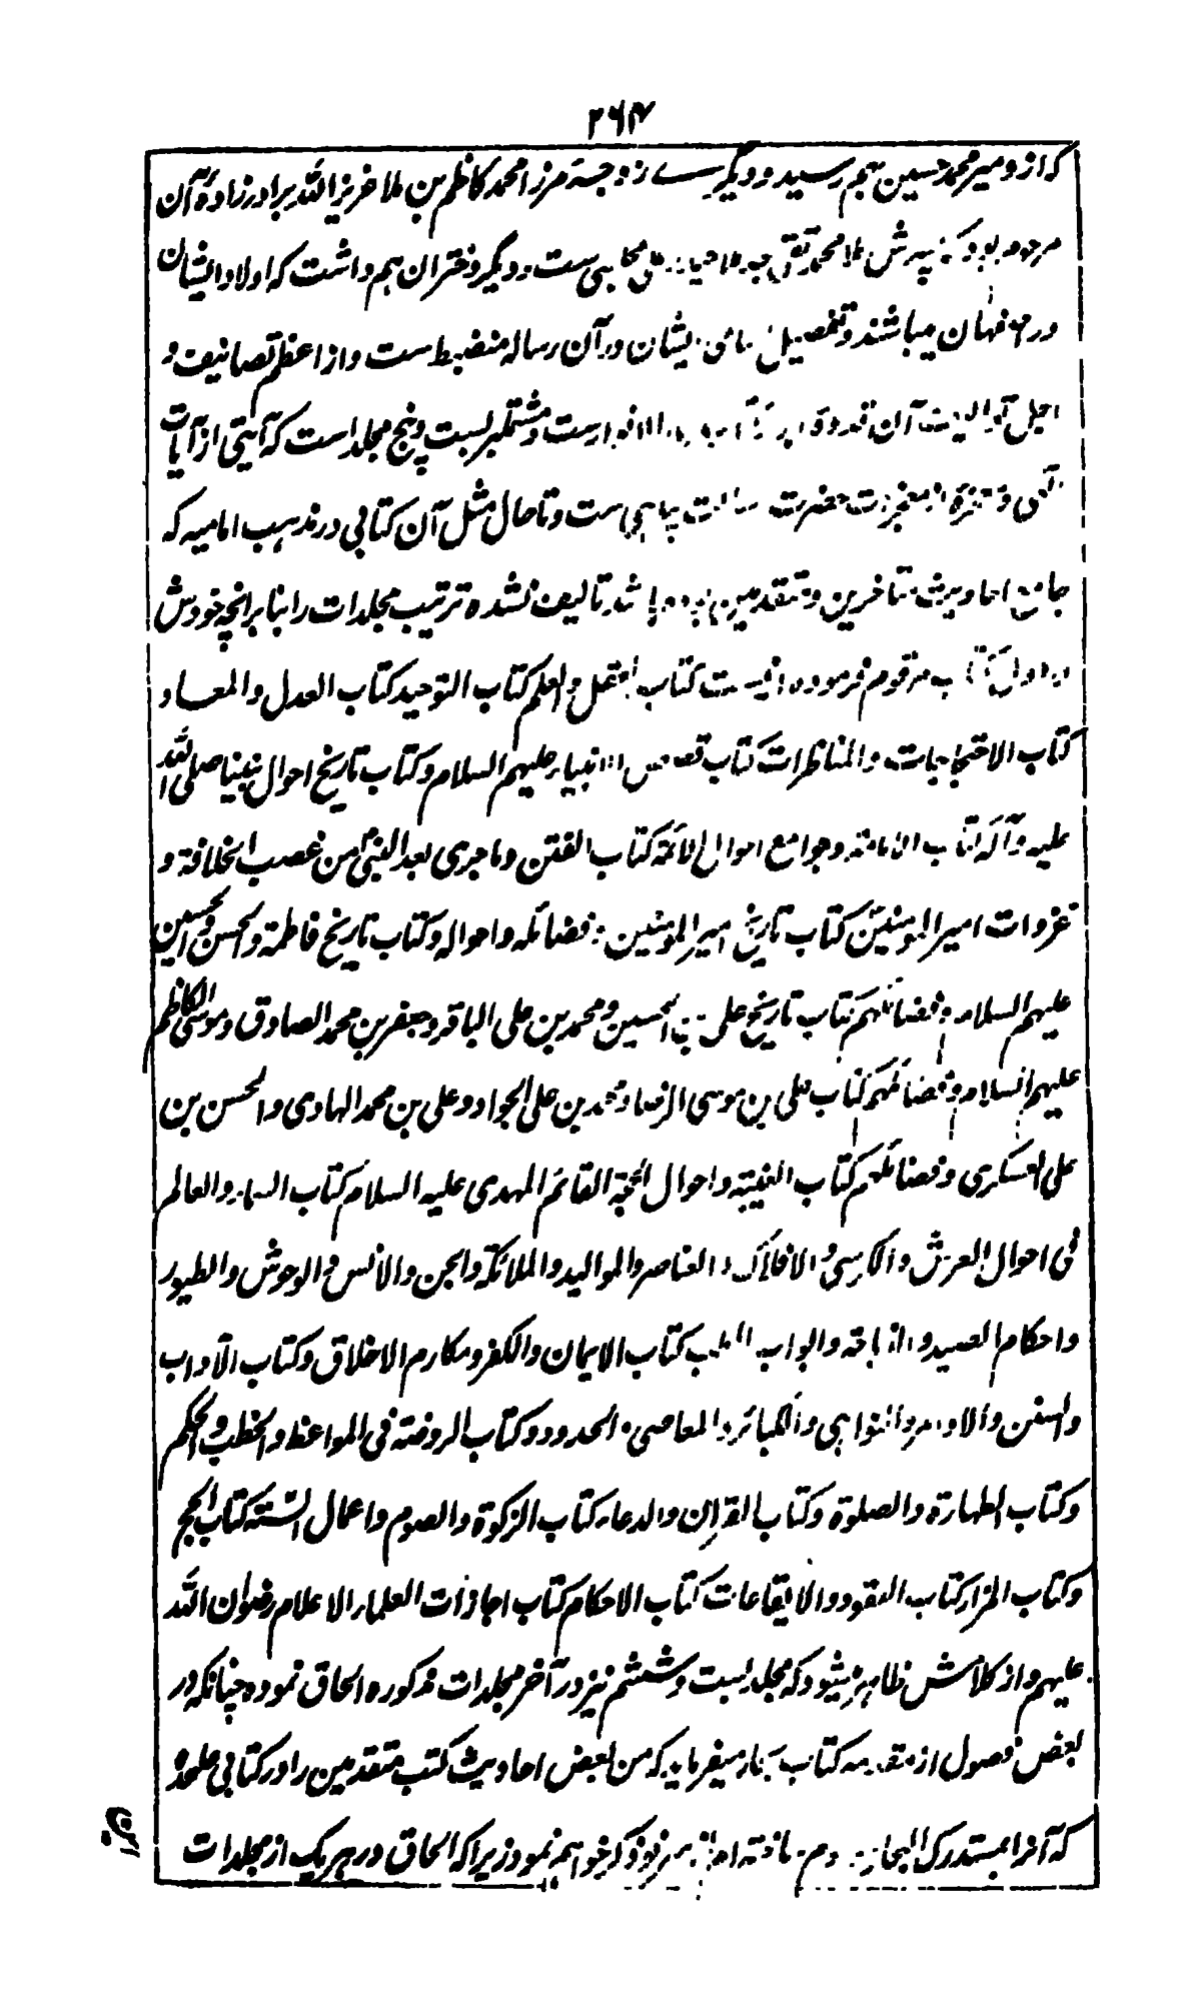 ۲۶۴
که ازو میر محمد حسین بهم رسید و دیگری زوجهٔ مرزا محمد کاظم بن ملا عزیز الله برادرزادهٔ آن
مرحوم بود که پسرش ملا محمد تقی ست و دیگر دختران هم داشت که اولاد ایشان
در اصفهان میباشند و تفصیل ایشان در آن رساله منضبط ست و از اعظم تصانیف و
اجل تآلیف آن بحار الانوار ست و مشتمل بر بست و پنج مجلد است که آیتی از آیات
و معجزه از معجزات حضرت رسالت پناهی ست و تا حال مثل آن کتابی در مذهب امامیه که
جامع احادیث متاخرین و متقدمین بوده باشد تالیف نشده ترتیب مجلدات را بنا بر انچه خودش
در اول کتاب مرقوم فرموده اینست کتاب العقل والعلم کتاب التوحید کتاب العدل والمعاد
کتاب الاحتجاجات والمناظرات کتاب قصص الانبیاء علیهم السلام و کتاب تاریخ احوال نبینا صلی الله
علیه وآله کتاب الامامة وجوامع احوال الائمة کتاب الفتن وما جری بعد النبی من غصب الخلافة و
غزوات امیر المومنین کتاب تاریخ امیر المومنین و فضائله واحواله و کتاب تاریخ فاطمة والحسن والحسین
علیهم السلام و فضائلهم کتاب تاریخ علی بن الحسین و محمد بن علی الباقر و جعفر بن محمد الصادق و موسی الکاظم
علیهم السلام و فضائلهم کتاب علی بن موسی الرضا و محمد بن علی الجواد و علی بن محمد الهادی والحسن بن
علی العسکری و فضائلهم کتاب الغیبة واحوال الحجة القائم المهدی علیه السلام کتاب السماء والعالم
فی احوال العرش والکرسی والافلاک والعناصر والموالید والملائکة والجن والانس والوحوش والطیور
واحکام الصید والذباحة وابواب الطب کتاب الایمان والکفر ومکارم الاخلاق و کتاب الآداب
والسنن والاوامر والنواهی والکبائر والمعاصی والحدود و کتاب الروضة فی المواعظ والخطب والحکم
و کتاب الطهارة والصلوة و کتاب القران والدعاء کتاب الزکوة والصوم واعمال السنة کتاب الحج
و کتاب المزار کتاب العقود والایقاعات کتاب الاحکام کتاب اجازات العلماء الاعلام رضوان الله
علیهم و از کلامش ظاهر میشود که مجلد بست و ششم نیز در آخر مجلدات مذکوره الحاق نموده چنانکه در
بعض فصول از مقدمه کتاب بحار میفرماید که من بعض احادیث کتب متقدمین را در کتابی علحده
که آنرا بمستدرک البحار ذکر خواهم نمود زیرا که الحاق در هر یک از مجلدات
این